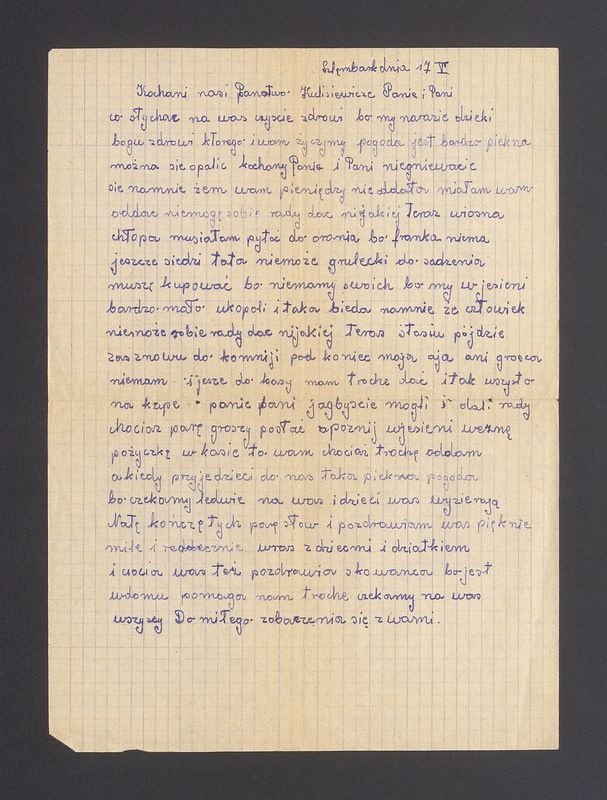 Szlembark dnia 17 V
Kochani nasi Państwo Kulisiewicze Panie i Pani
co słychac na was czyscie zdrowi bo my narazie dzieki
bogu zdrowi kłorego i wam życzymy pogoda jest bardzo piekna
można sie opalic kochany Panie i Pani niegniewacie
sie namnie żem wam pieniędzy nie oddała miałam wam
oddac niemogę sobie rady dac nijakiej Teraz wiosna
chłopa musiałam pytać do orania bo franka niema
jeszcze siedzi tata niemoże grulecki do sadzenia
muszę kupować bo niemamy swoich bo my wjesieni
bardzo mało ukopoli i taka bieda namnie że człowiek
niemoże sobie rady dac nijakiej teras stasiu pójdzie
zas znowu do komniji pod koniec maja aja ani grosza
niemam i jesze do kasy mam troche dać i tak wszysto
na kupe panie pani jagbyscie mogli i dali rady
chociasz parę groszy posłać apoznij wjesieni wezne
pożyczkę w kasie to wam chociaż trochę oddam
akiedy przyjedzieci do nas taka piekna pogoda
bo czekamy ledwie na was i dzieci was wyzierają
Natę kończę tych parę słow i pozdrawiam was pięknie
mile i reddecznie wras z dziecmi i dziatkiem
i ciocia was też pozdrawia skowanca bo jest
wdomu pomaga nam trochę czekamy na was
wszyscy Do miłego zobaczenia się z wami.